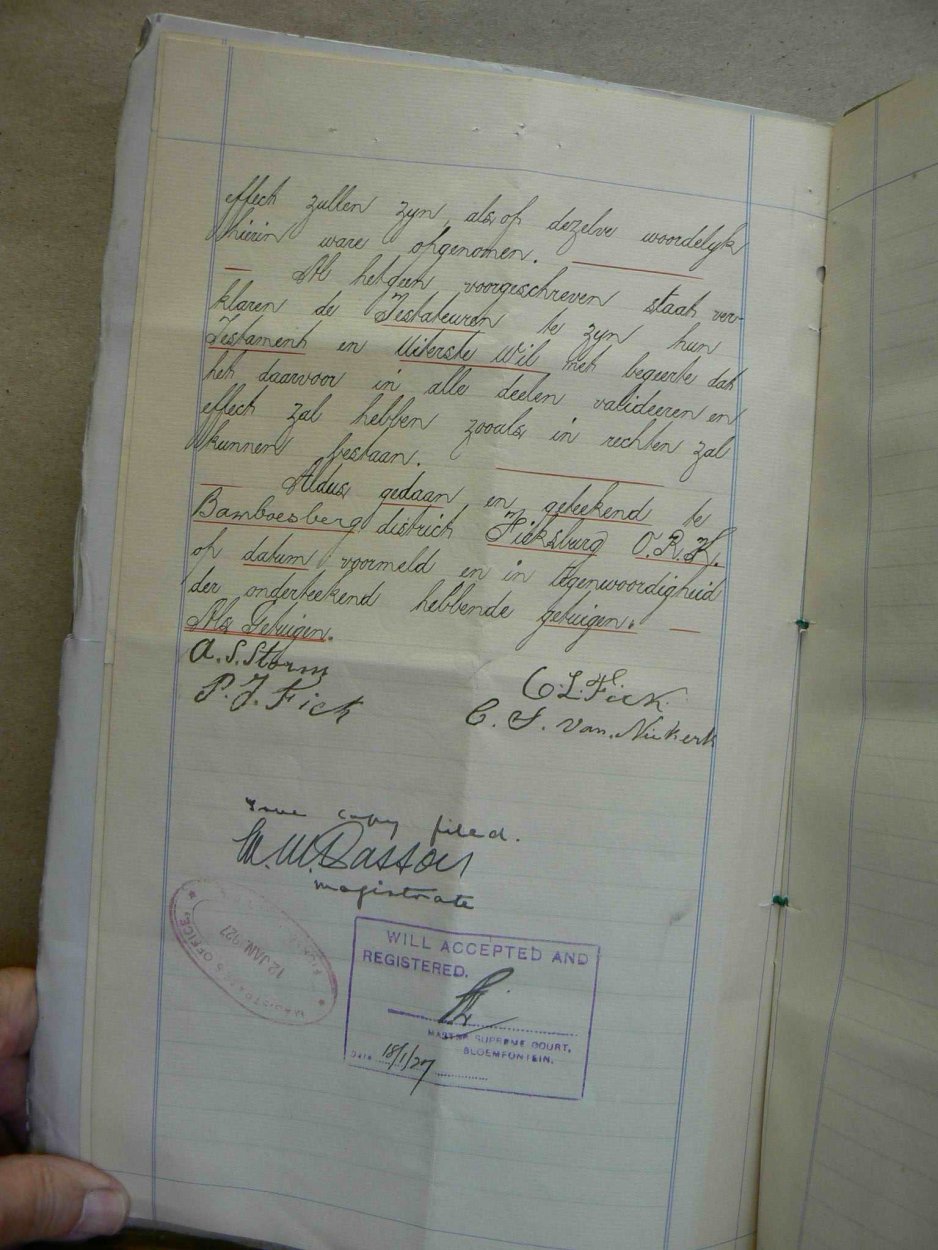 effect zullen zyn, alsof dezelve woordelyk
hierin ware opgenomen.
Al hetgeen voorgeschreven staat ver-
klaren de Testateuren te zyn hun
Testament en Uiterste Wil met begeerte dat
het daarvoor in alle deelen valideeren en
effect zal hebben zooals in rechten zal
kunnen bestaan.
Aldus gedaan en geteekend te
Bamboesberg district Ficksburg O.R.K.
op datum voormeld en in tegenwoordigheid
der onderteekend hebbende getuigen.
Als Getuigen.
A. S. Storm
P. J. Fick
C. L. Fick.
C. J. van Niekerk
True copy filed.
magistrate
MAGISTRATE'S OFFICE
12 JAN. 1927
WILL ACCEPTED AND
REGISTERED.
MASTER SUPREME COURT,
BLOEMFONTEIN.
DATE 18/1/27